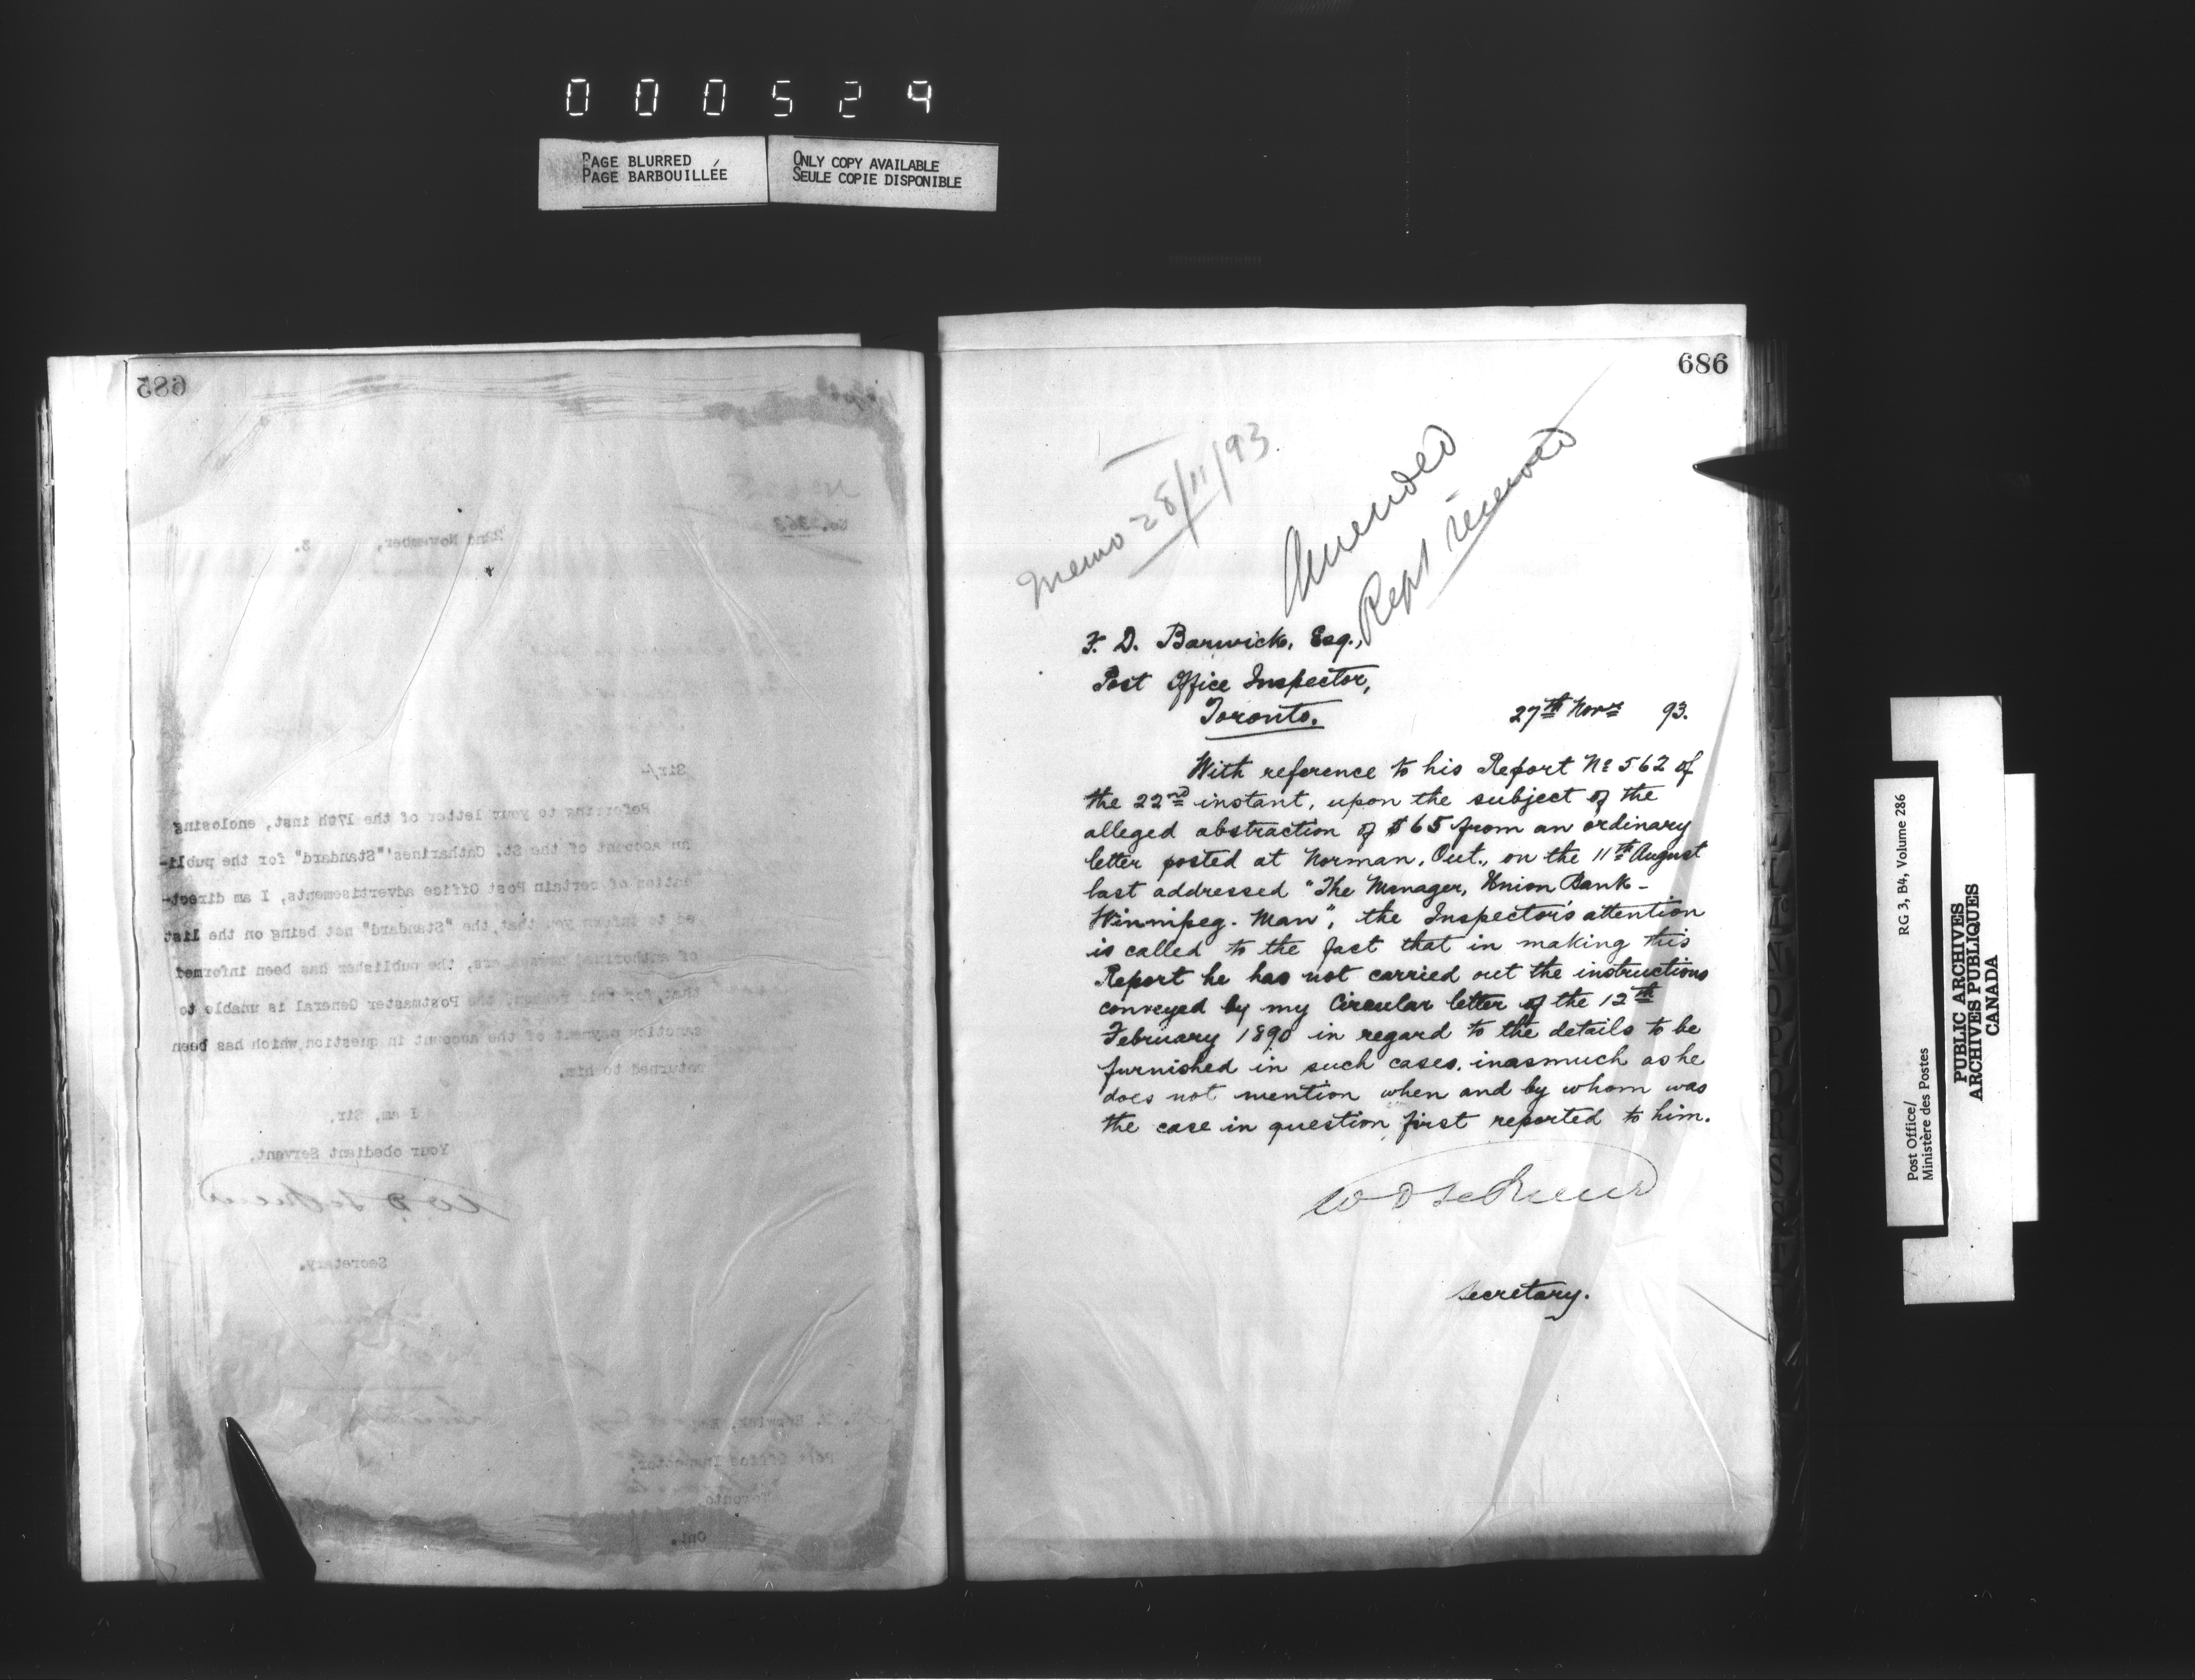 000529
PAGE BLURRED
PAGE BARBOUILLÉE
ONLY COPY AVAILABLE
SEULE COPIE DISPONIBLE
685
No. 362
22nd November, 3.
Sir/-
Referring to your letter of the 17th inst, enclosing
an account of the St. Catharines' "Standard" for the publi-
cation of certain Post Office advertisements, I am direct-
ed to inform you that, the "Standard" not being on the list
of authorized newspapers, the publisher has been informed
that, for this reason, the Postmaster General is unable to
sanction payment of the account in question, which has been
returned to him.
I am, Sir,
Your obedient Servant,
Secretary.
Barwick, Esq.
Post Office Inspector,
Toronto,
Ont.
686
Memo 28/11/93.
Amended
Rept received
F. D. Barwick, Esq.,
Post Office Inspector,
Toronto.
27th Novr 93.
With reference to his Report No 562 of
the 22nd instant, upon the subject of the
alleged abstraction of $65 from an ordinary
letter posted at Norman, Ont., on the 11th August
last addressed "The Manager, Union Bank -
Winnipeg. Man", the Inspector's attention
is called to the fact that in making this
Report he has not carried out the instructions
conveyed by my Circular letter of the 12th
February 1890 in regard to the details to be
furnished in such cases, inasmuch as he
does not mention when and by whom was
the case in question first reported to him.
Secretary.
RG 3, B4, Volume 286
Post Office/
Ministère des Postes
PUBLIC ARCHIVES
ARCHIVES PUBLIQUES
CANADA